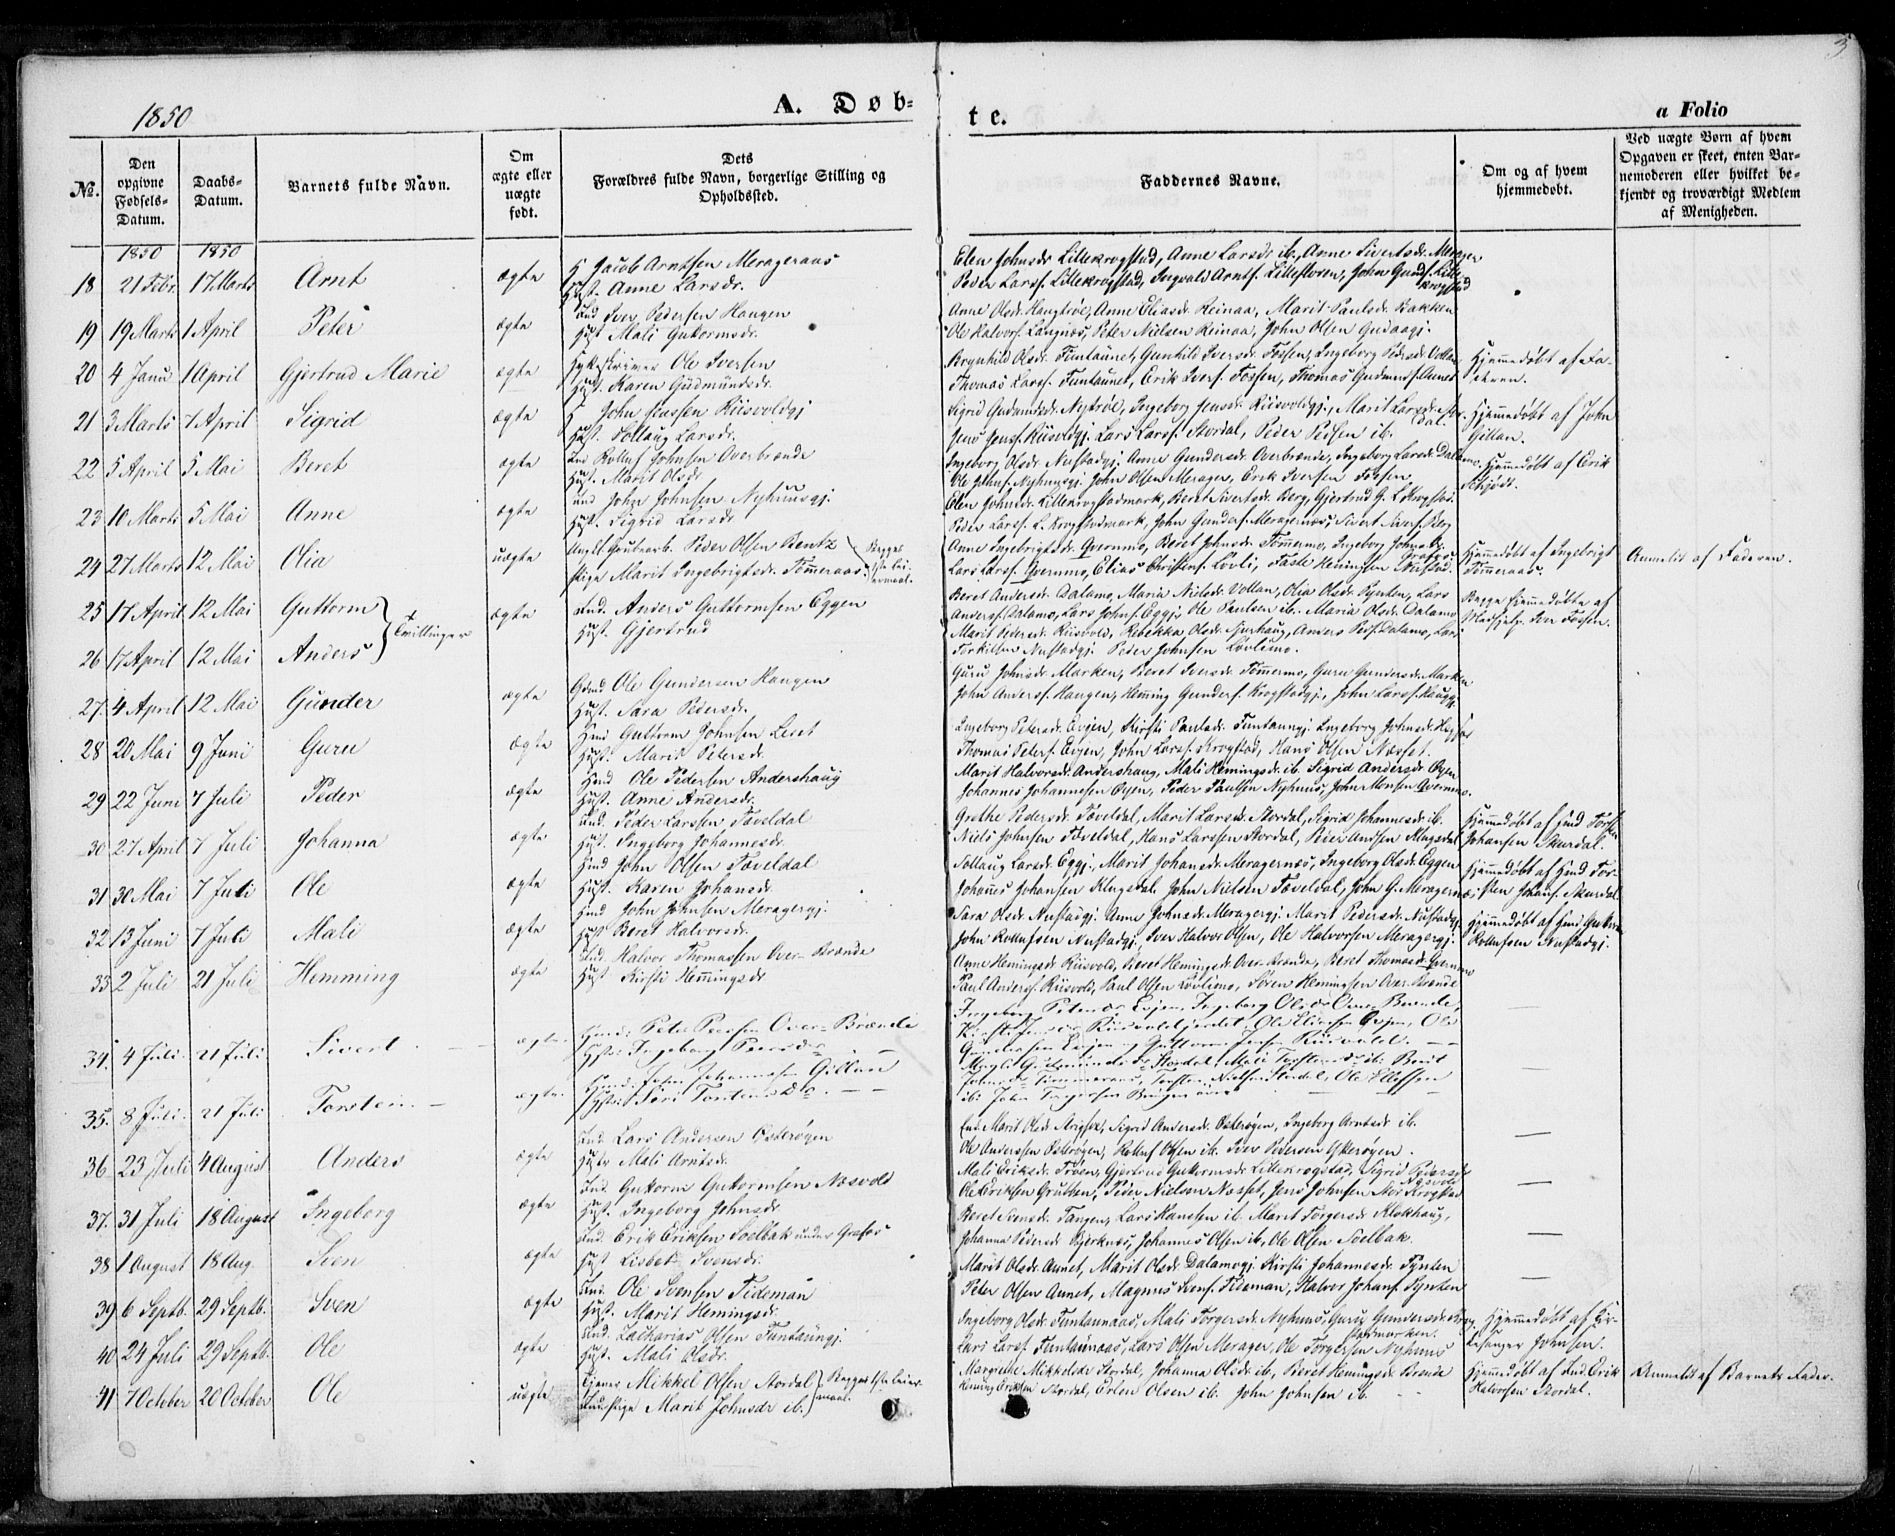 3
1850
A. Døb-
te.
a Folio
No.
Den opgivne Fødsels-Datum.
Daabs-Datum.
Barnets fulde Navn.
Om ægte eller uægte født.
Dets Forældres fulde Navn, borgerlige Stilling og Opholdssted.
Faddernes Navne.
Om og af hvem hjemmedøbt.
Ved uægte Børn af hvem Opgaven er skeet, enten Barnemoderen eller hvilket bekjendt og troværdigt Medlem af Menigheden.
1850 1850
18 21 Febr. 17 Marts Arnt ægte Jacob Arntsen Merageraas
Hust. Anne Larsdr.
Elen Johnsdr Lillekrogstad, Anne Larsdr ib., Anne Sivertsdr. Merager
Peder Larss. Lillekrogstad, Ingvald Arntss. Lillefloren, John Gunds. Lillekrogstad
19 19 Marts 1 April Peter ægte Ind Iver Pedersen Haugen
Hust Mali Gutormsdr.
Anne Olsdr. Haugtrøe, Anne Eliasdr. Reinaa, Marit Paulsdr. Bakken
Ole Halvors. Langnæs, Peter Nielsen Reinaa, John Olsen Gudaagj.
20 4 Janu 1 April Gjertrud Marie ægte Ole Iversen
Hust. Karen Gudmundsdr.
Brynhild Olsdr. Funtaunet, Gunhild Iversdr. Fossen, Ingeborg Pedersdr Vollan
Thomas Larss. Funtaunet, Erik Ivers. Fossen, Thomas Gudmunds. Aunet
Hjemmedøbt af Faderen.
21 3 Marts 7 April Sigrid ægte John Jenssen Riisvoldgj
Hust. Sollaug Larsdr.
Sigrid Gudmundsdr. Nytrøe, Ingeborg Jensdr. Riisvoldgj., Marit Larsdr. Stordal.
Jens Jenss. Riisvoldgj. Lars Larss. Stordal, Peder Pedsen ib.
Hjemmedøbt af John Gillan.
22 5 April 5 Mai Beret ægte Ind Rolluf Johnsen Overbrænde
Hust. Marit Olsdr
Ingeborg Olsdr Nustadgj. Anne Gundersdr. Overbrænde, Ingeborg Larsdr. Dalamo.
Ole Johns. Nyhuusgj. John Olsen Merager, Erik Iversen Fossen
Hjemmedøbt af Erik
23 10 Marts 5 Mai Anne ægte Ind John Johnsen Nyhuusgj.
Hust. Sigrid Larsdr
Elen Johnsdr. Lillekrogstadmark, Beret Sivertsdr. Berg, Gjertrud G. L. Krogstad.
Peder Larss. L. Krogstadmark, John Gunders. Meragernæs, Sivert Sivers. Berg
24 27 Marts 12 Mai Olia uægte Ungk. Grubearb. Peder Olsen Bentz
Pige Marit Ingebrigtsdr. Tømeraas. Begges 1ste Leiermaal.
Anne Ingebrigtsdr. Qvernmo, Beret Johnsdr. Tømmermo, Ingeborg Johnsdr.
Lars Larss. Qvernmo, Elias Christens. Løvli, Taale Hemingsen Nustad.
Hjemmedøbt af Ingebrigt Tømeraas.
Anmeldt af Faderen.
25 17 April 12 Mai Guttorm
26 17 April 12 Mai Anders
Tvillinger ægte Ind. Anders Guttormsen Eggen
Hust. Gjertrud
Beret Andersdr. Dalamo, Maria Nilsdr. Vollan, Olia Olsdr. Pynten, Lars
Anderss. Dalamo, Lars Johns. Eggj. Ole Paulsen ib. Maria Olsdr. Dalamo
Marit Pedersdr. Riisvold, Rebekka Olsdr. Tjurhaug, Anders Peds. Dalamo, Lars
Torkilsen Nustadgj. Peder Johnsen Løvlimo.
Begge hjemmedøbte af Iver Fossen.
27. 4 April 12 Mai Gunder ægte Gdmd Ole Gundersen Haugen
Hust. Sara Pedersdr.
Guru Johnsdr Marken, Beret Iversdr. Tømermo, Guru Gundersdr. Marken
John Anderss. Haugen, Heming Gunders. Krogstadgj., John Larss. Haugen
28 20 Mai 9 Juni Guru ægte Hmd Guttorm Johnsen Leset
Hust. Marit Petersdr.
Ingeborg Petersdr. Evjen, Kirsti Paulsdr. Funtaunegj. Ingeborg Johnsdr.
Thomas Peters. Evjen, John Larss. Krogstad, Hans Olsen Næsset.
29 22 Juni 7 Juli Peder ægte Hmd Ole Pedersen Andershaug
Hust. Anne Andersdr.
Marit Halvorsdr. Andershaug, Mali Hemingsdr. ib. Sigrid Andersdr Øyen
Johannes Johannesen Øyen, Peder Paulsen Nyhuus, John Monsen Qvernmo.
30 27 April 7 Juli Johanna ægte Ind. Peder Larssen Tøveldal
Hust. Ingeborg Johannesdr.
Grethe Pedersdr. Tøveldal, Marit Larsdr. Stordal, Sigrid Johannesdr ib.
Niels Johnsen Tøveldal, Hans Larssen Stordal, Peder Klugsdal
Hjemmedøbt af Hmd Torsten Johansen Skurdal.
31 30 Mai 7 Juli Ole ægte Hmd John Olsen Tøveldal
Hust. Karen Johansdr.
Sollaug Larsdr. Eggj. Marit Johansdr. Meragernæs, Ingeborg Olsdr. Eggen
Johanes Johansen Klugsdal. John Nielsen Tøveldal, John G. Merageræ.
Hjemmedøbt af Hmd Torsten Johans. Skurdal
32 13 Juni 7 Juli Mali ægte Hmd John Johnsen Meragergj.
Hust Beret Halvorsdr.
Sara Olsdr. Nustadgj. Anne Johnsdr. Meragergj. Marit Pedersdr. Nustadgj.
John Rollufsen Nustadgj., Iver Halvor Olsen, Ole Halvorsen Meragergj.
Hjemmedøbt af Hmd Gutorm Rollufsen Nustadgj.
33 2 Juli 21 Juli Hemming ægte Ind Halvor Thomassen Over-Brænde
Hust Kirsti Hemingsdr
Anne Hemingsdr Riisvold, Beret Hemingsdr Over-Brænde, Beret Thomasdr Qvernmo
Paul Anderss. Riisvold, Paul Olsen Løvlimo, Søren Hemingsen Over-Brænde
34. 4 Juli. 21 Juli. Sivert ægte Hmd: Peter Peersen Over-Brænde
Hust: Ingeborg Peersdr
Ingeborg Petersdr. Evjen, Ingeborg Olsdr Over Brænde,
Kirsti Riisvoldgjerdet, Ole Eliasen Evjen, Ole
Gundersen Evjen og Guttorm Jensen Riisvold.
35. 8 Juli. 21 Juli Torsten ægte Hmd. John Johannesen Gillan
Hust: Siri Torstensdr.
Magli Gudmundsdr. Stordal, Mali Torstensdr ib: Berit
Johnsdr Tømmeraas, Torsten Nielsen Stordal, Ole Ellefsen
ib: John
36 23 Juli 4 August Anders ægte Ind. Lars Andersen Østerøyen
Hustr Mali Arntsdr.
Marit Olsdr. Sigrid Andersdr. Østerøyen, Ingeborg Arntsdr ib.
Ole Andersen Østerøyen, Rolluf Olsen ib. Iver Pedersen Østerøyen.
37. 31 Juli 18 August Ingeborg ægte Ind. Gutorm Gutormsen Næsvold
Hust. Ingeborg Johnsdr.
Mali Eriksdr. Trøen, Gjertrud Gutormsdr Lillekrogstad, Sigrid Pedersdr Næsvold
Ole Eriksen Grutten, Peder Nielsen Næsset, Jens Johnsen Stor Krogstad
38 1 August 18 Aug. Sven ægte Ind. Erik Eriksen Soelbak under Grafos
Hust Lisbet Svensdr.
Beret Svensdr. Tangen, Lars Hansen ib. Marit Torgersdr. Klokhaug,
Johanna Pedersdr Bjerknæs, Johannes Olsen ib, Ole Olsen Soelbak.
39 6 Septb. 29 Septb. Sven ægte Ind. Ole Svensen Tideman
Hust. Marit Hemingsdr.
Marit Olsdr. Aunet, Marit Olsdr. Dalamogj. Kirsti Johannesdr. Pynten
Peter Olsen Aunet, Magnus Svens. Tideman, Halvor Johans. Pynten
40 24 Juli 29 Septb. Ole ægte Ind. Zacharias Olsen Funtaunegj.
Hust. Mali Olsdr.
Ingeborg Olsdr. Funtaunaas, Mali Torgersdr. Nyhuus, Guru Gundersdr. Krogstadmarken.
Lars Larss. Funtaunaas, Lars Olsen Merager, Ole Torgersen Nyhuus
Hjemmedøbt af Johnsen.
41 7 October 20 October Ole uægte Tjener Mikkel Olsen Stordal
Pige Marit Johnsdr ib. Begges 1ste Leiermaal.
Margrethe Mikkelsdr Stordal, Johanna Olsdr ib, Beret Hemingsdr Brænde
Heming Eriksen Stordal, Erlen Olsen ib. John Johnsen ib.
Hjemmedøbt af Ind. Erik Halvorsen Stordal.
Anmeldt af Barnets Fader.